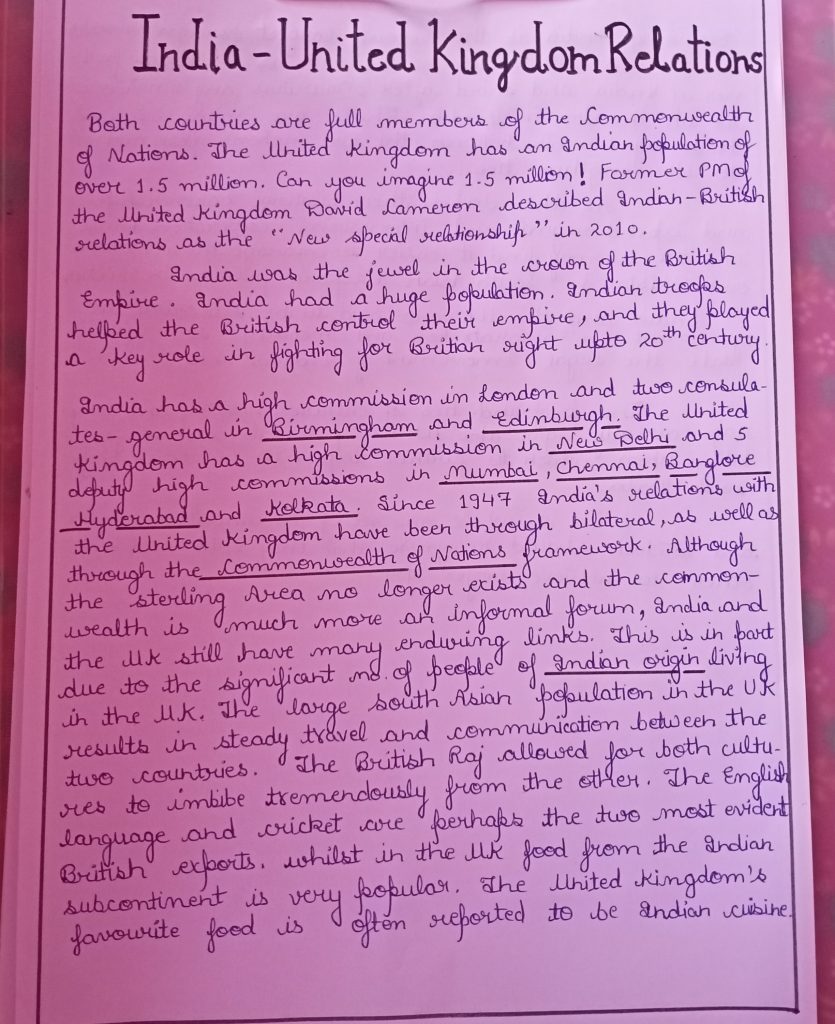 India-United Kingdom Relations
Both countries are full members of the Commonwealth
of Nations. The United Kingdom has an Indian population of
over 1.5 million. Can you imagine 1.5 million! Former PM of
the United Kingdom David Cameron described Indian-British
relations as the "New special relationship" in 2010.
India was the jewel in the crown of the British
Empire. India had a huge population. Indian troops
helped the British control their empire, and they played
a key role in fighting for Britian right upto 20th century.
India has a high commission in London and two consula-
tes-general in Birmingham and Edinburgh. The United
Kingdom has a high commission in New Delhi and 5
deputy high commissions in Mumbai, Chennai, Banglore
Hyderabad and Kolkata. Since 1947 India's relations with
the United Kingdom have been through bilateral, as well as
through the Commonwealth of Nations framework. Although
the sterling Area no longer exists and the common-
wealth is much more an informal forum, India and
the UK still have many enduring links. This is in part
due to the significant no. of people of Indian origin living
in the UK. The large south Asian population in the UK
results in steady travel and communication between the
two countries. The British Raj allowed for both cultu-
res to imbibe tremendously from the other. The English
language and cricket are perhaps the two most evident
British exports. whilst in the UK food from the Indian
subcontinent is very popular. The United Kingdom's
favourite food is often reported to be Indian cuisine.